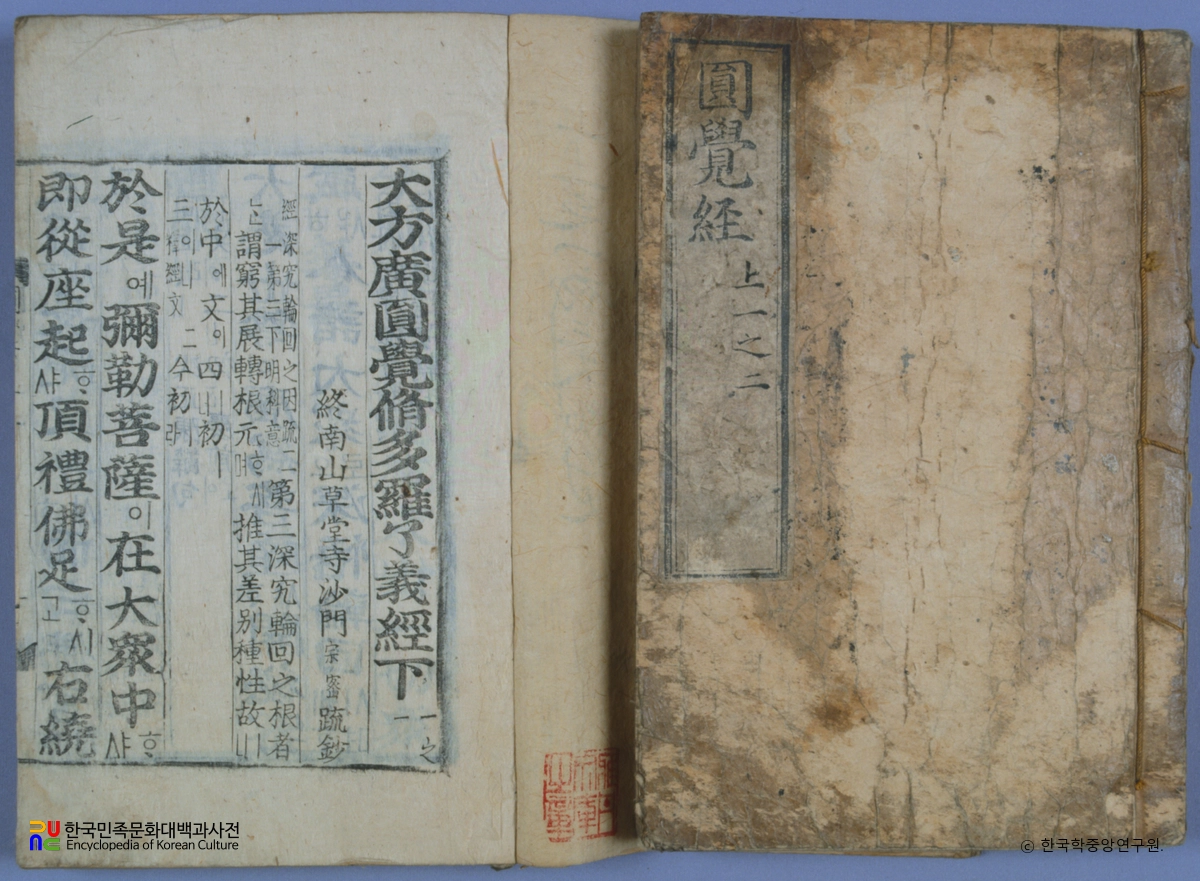 圓覺経 上一之二
大方廣圓覺脩多羅了義經下 一之一
終南山草堂寺沙門 宗密 疏鈔
經 深究輪回之因 疏二 第三深究輪回之根者
謂窮其展轉根元 推其差別種性故
於中에 文이 四 初
三이 二 수初
於是예 彌勒菩薩이 在大衆中
即從座起 頂禮佛足 右繞
한국민족문화대백과사전
Encyclopedia of Korean Culture
© 한국학중앙연구원.